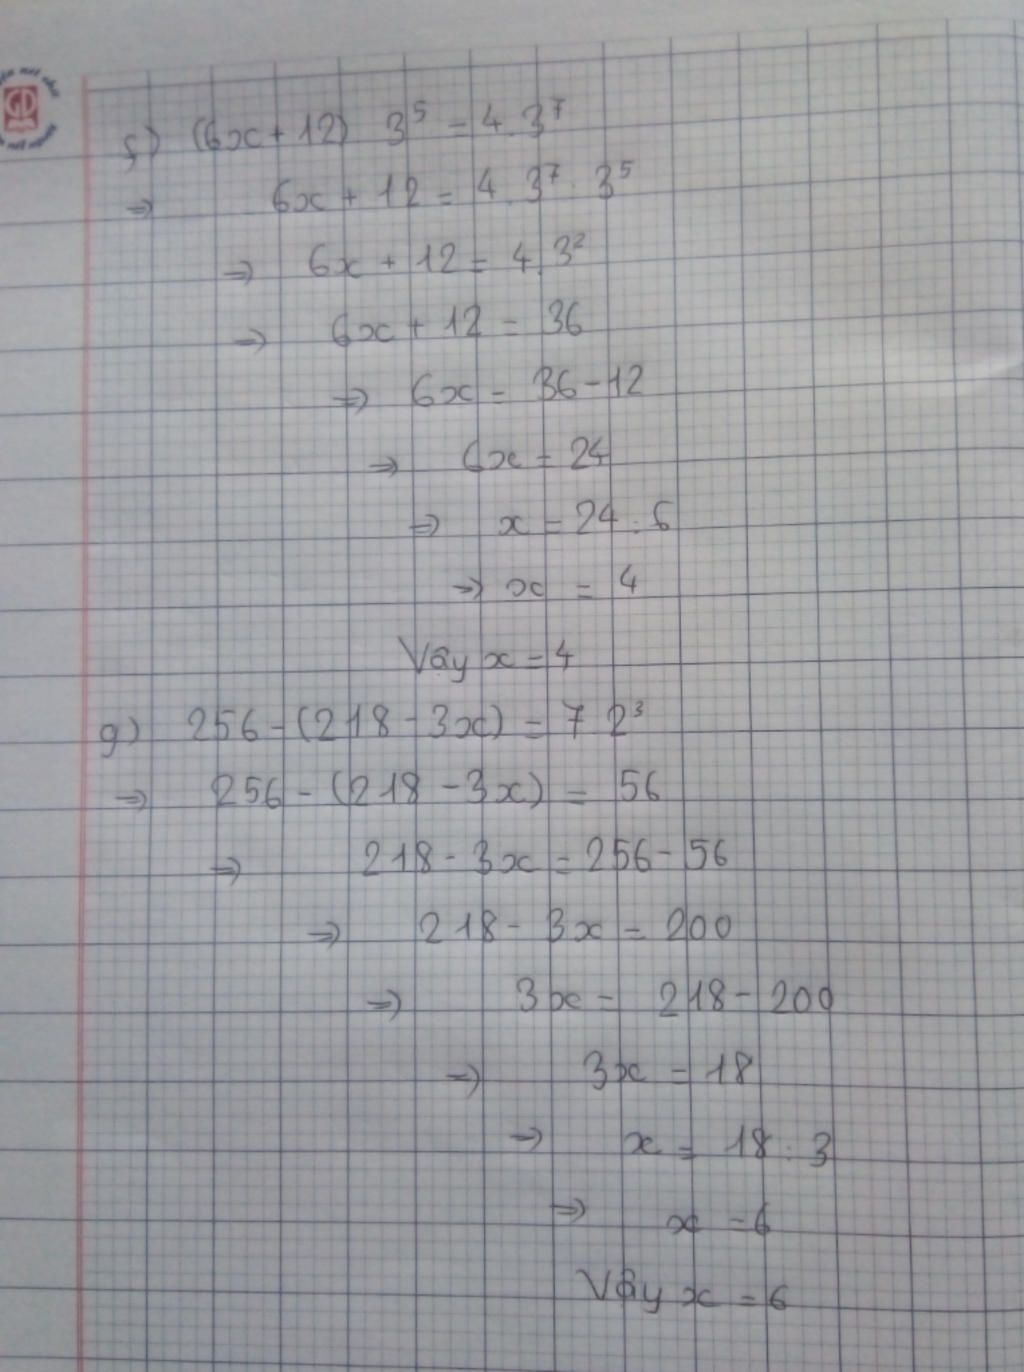 GD
f) (6x + 12) 3⁵ = 4.3⁷
⇒ 6x + 12 = 4.3⁷:3⁵
⇒ 6x + 12 = 4.3²
⇒ 6x + 12 = 36
⇒ 6x = 36 - 12
⇒ 6x = 24
⇒ x = 24:6
⇒ x = 4
Vậy x = 4
g) 256 - (218 - 3x) = 7 2³
⇒ 256 - (218 - 3x) = 56
⇒ 218 - 3x = 256 - 56
⇒ 218 - 3x = 200
⇒ 3x = 218 - 200
⇒ 3x = 18
⇒ x = 18:3
⇒ x = 6
Vậy x = 6